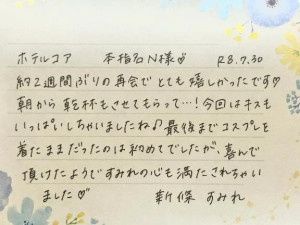 ホテルコア　本指名Nt様♡　R8.7.30
約2週間ぶりの再会でとても嬉しかったです♡
朝から乾杯もさせてもらって…!今回はキスも
いっぱいしちゃいましたね♪最後までコスプレを
着たままだったのは初めてでしたが、喜んで
頂けたようですみれの心も満たされちゃい
ました♡　新條 すみれ